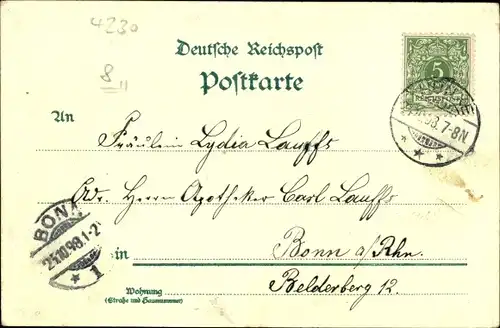 4230
8
Deutsche Reichspost
Postkarte
5
98. 7-8N
An
Fräulein Lydia Lauffs
Adr. Herrn Apotheker Carl Lauffs
BONN
25.10.98.1-2
1
in Bonn a/Rhn.
Belderberg 12.
Wohnung
(Straße und Hausnummer)